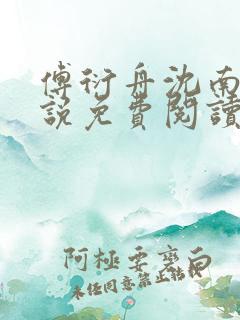 傅衍舟沈南
說免費閱讀
阿極要變白
未经同意禁止转载